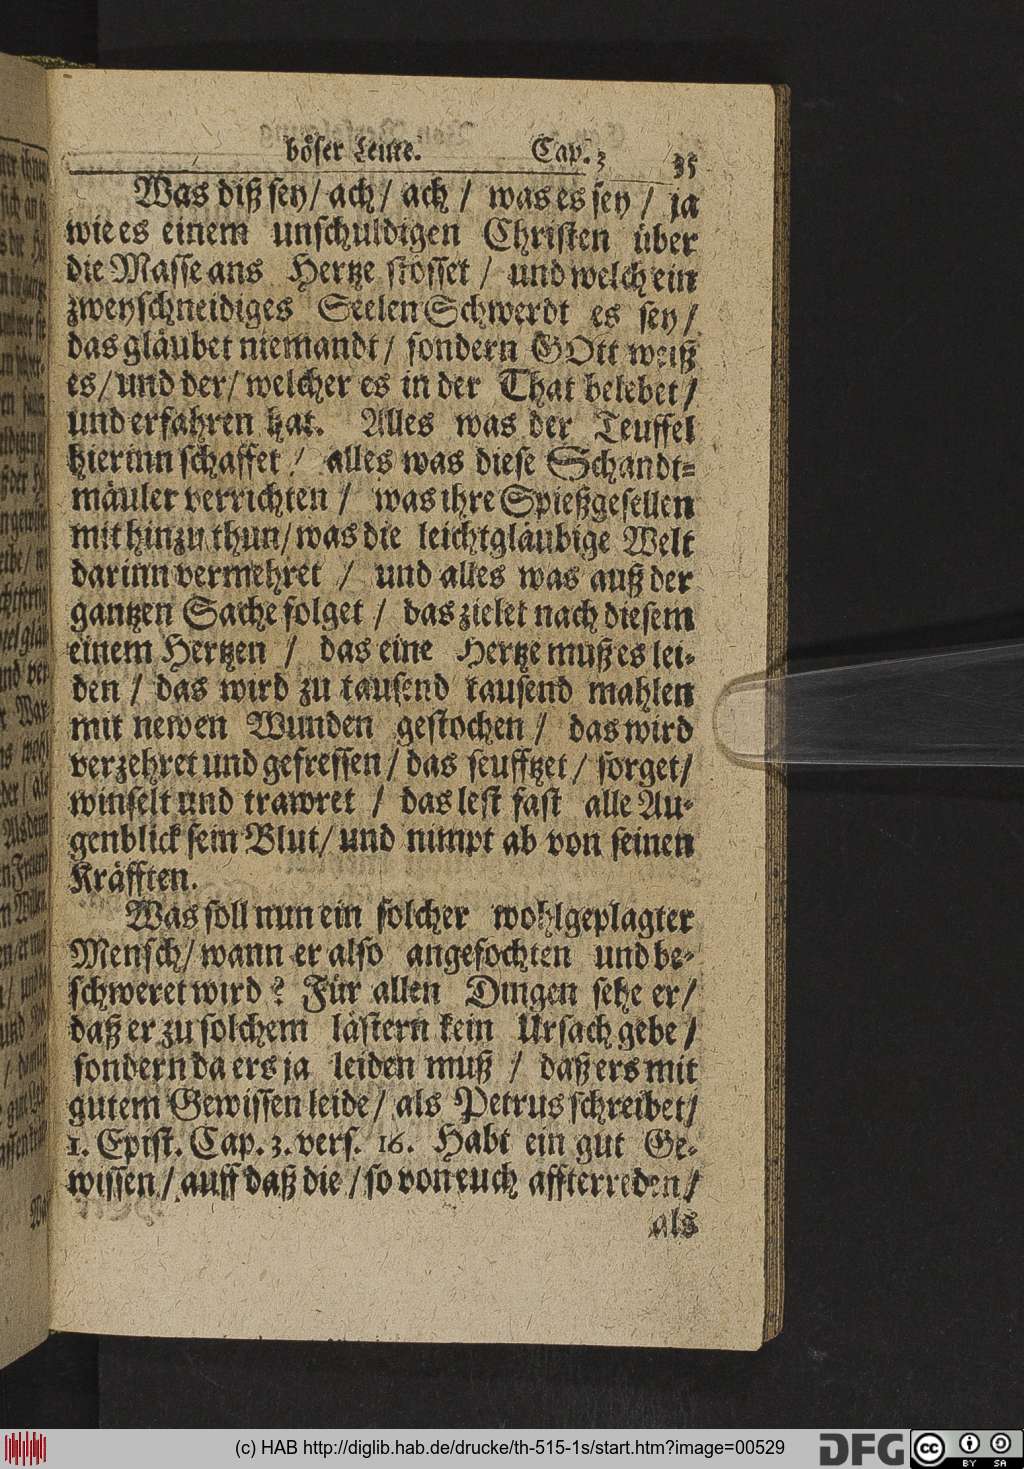 böser Leute. Cap. 3 35
Was diß sey/ ach/ ach/ was es sey/ ja
wie es einem unschuldigen Christen über
die Masse ans Hertze stosset/ und welch ein
zweyschneidiges Seelen Schwerdt es sey/
das gläubet niemandt/ sondern GOtt weiß
es/ und der/ welcher es in der That belebet/
und erfahren hat. Alles was der Teuffel
hierinn schaffet/ alles was diese Schandt-
mäuler verrichten/ was ihre Spießgesellen
mit hinzu thun/ was die leichtgläubige Welt
darinn vermehret/ und alles was auß der
gantzen Sache folget/ das zielet nach diesem
einem Hertzen/ das eine Hertze muß es lei-
den/ das wird zu tausend tausend mahlen
mit newen Wunden gestochen/ das wird
verzehret und gefressen/ das seufftzet/ sorget/
winselt und trawret/ das lest fast alle Au-
genblick sein Blut/ und nimpt ab von seinen
Kräfften.
Was soll nun ein solcher wohlgeplagter
Mensch/ wann er also angefochten und be-
schweret wird? Für allen Dingen sehe er/
daß er zu solchem lästern kein Ursach gebe/
sondern da ers ja leiden muß/ daß ers mit
gutem Gewissen leide/ als Petrus schreibet/
1. Epist. Cap. 3. vers. 16. Habt ein gut Ge-
wissen/ auff daß die/ so von euch affterreden/
als
(c) HAB http://diglib.hab.de/drucke/th-515-1s/start.htm?image=00529
DFG
cc BY SA